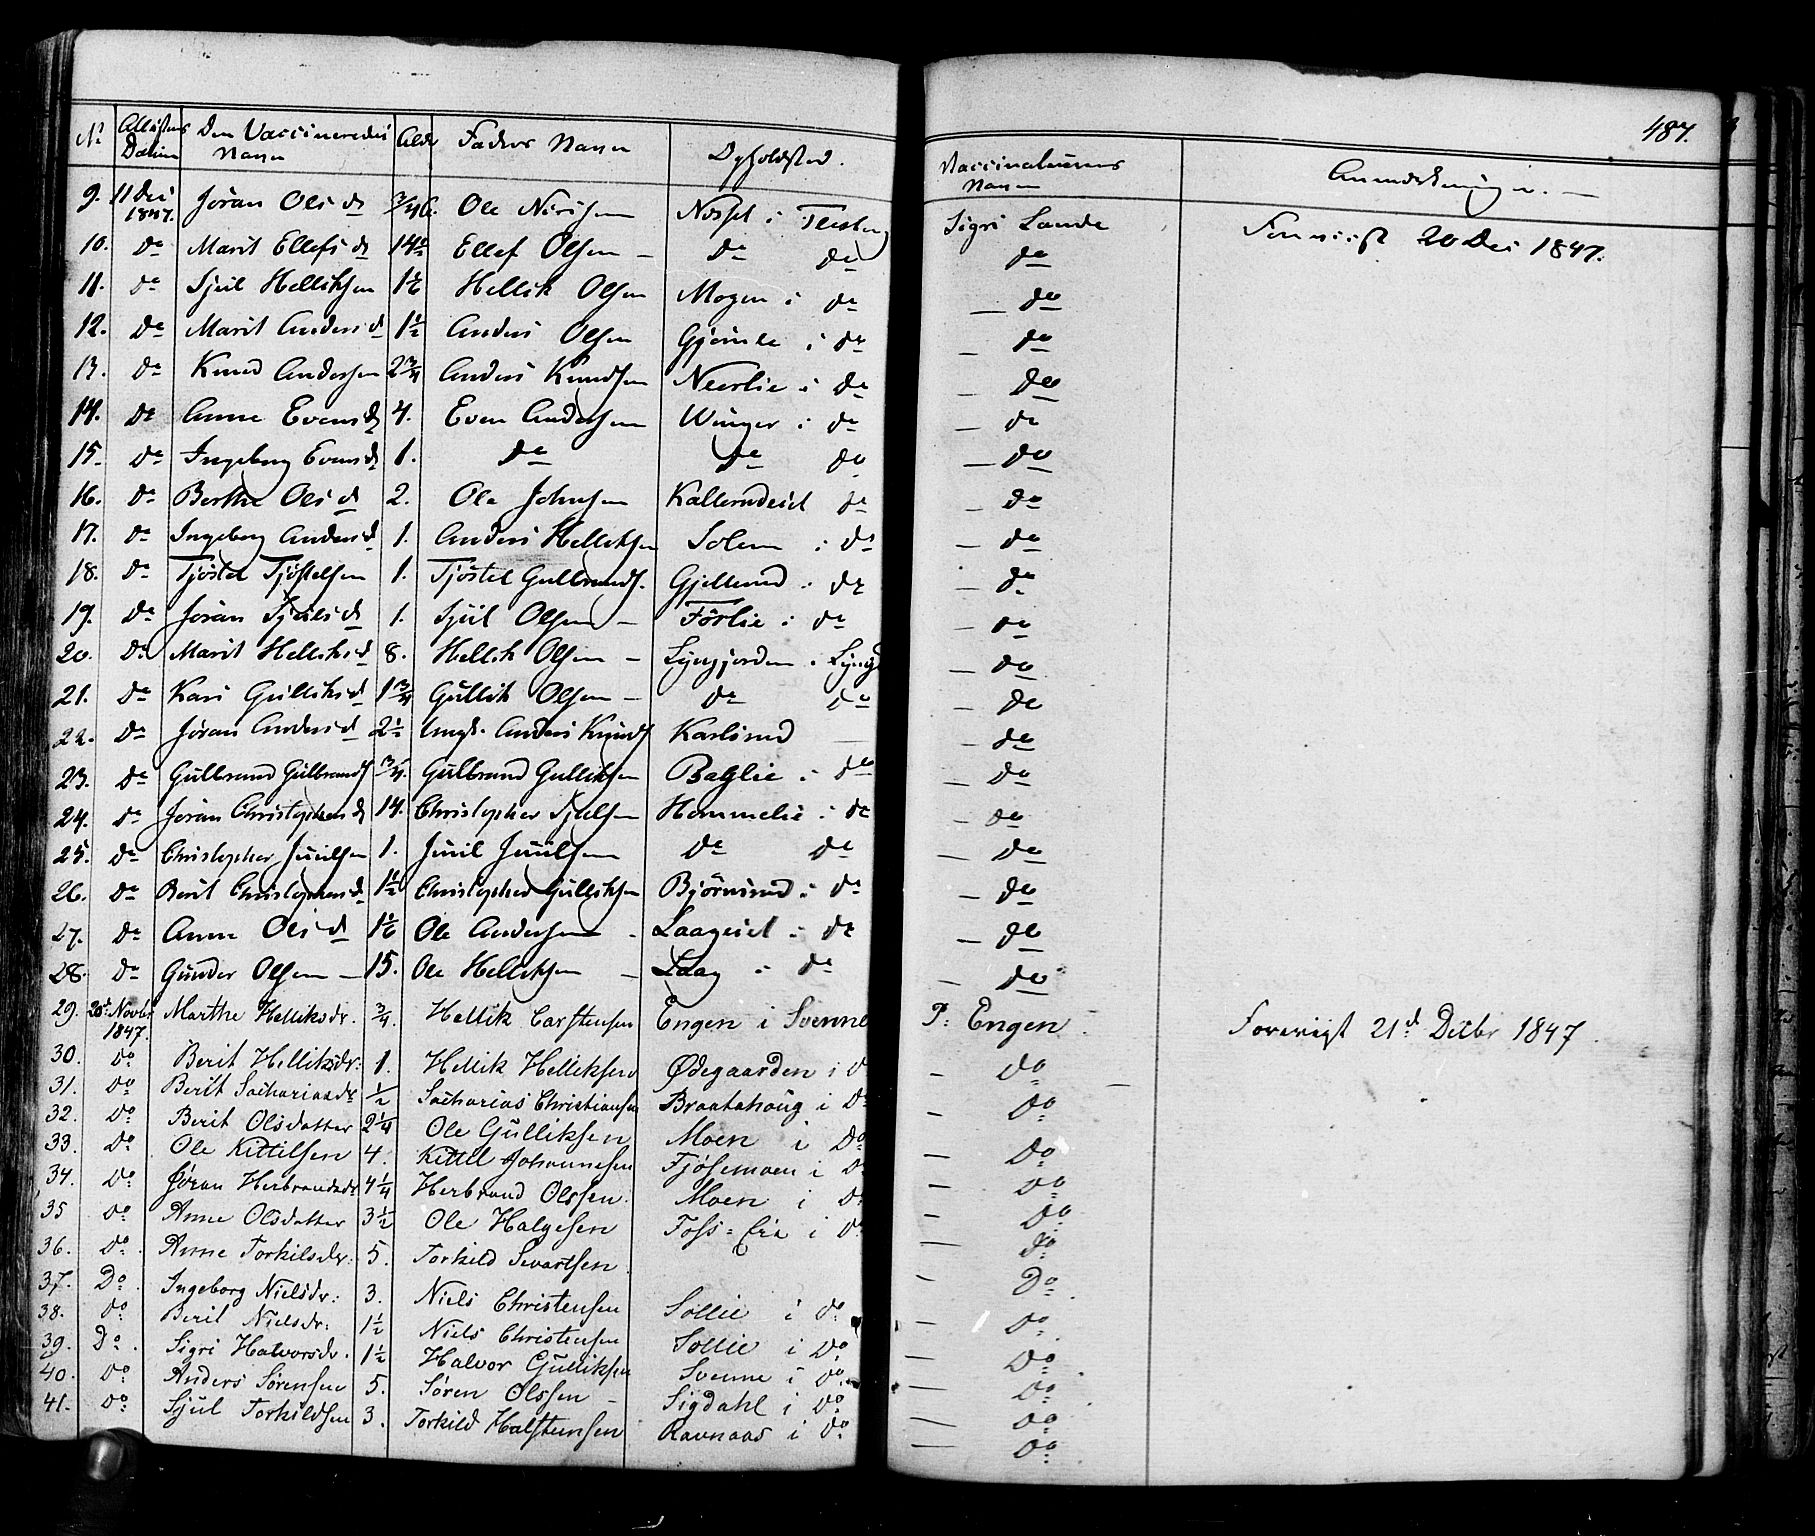 487.
No Attestens Datum Den Vaccineredes Navn Alder Faders Navn Opholdsted. Vaccinateurens Navn Anmærkninger. —
9. 11 Dec 1847. Jøran Olsd Ole Nirisen i Flesberg Sigri Lande Foreviist 20 Dec 1847.
10. do Marit Ellefsd 14½ Ellef Olsen — do do do
11. do Sjul Helliksen Hellik Olsen Mogen i do — do
12. do Marit Andersd 1½ Anders Olsen i do — do
13. do Knud Andersen 2¾ Anders Knudsen Neerlie i do — do
14. do Anne Evensd 4. Even Andersen Winger i do — do
15. do Ingeborg Evensd 1. do do do — do
16. do Berthe Olsd 2. Ole Johnsen do — do
17. do Ingeborg Andersd 1. Anders Helliksen Solem i do — do
18. do Tjøstel Tjøstelsen 1. Tjøstel Gulbrands. Gjellerud i do — do
19. do Jøran Sjulsd 1. Sjul Olsen — Førlie i do — do
20. do Marit Helliksd 8. Hellik Olsen — i Lyngd — do
21. do Kari Gulliksd 1¾ Gullik Olsen — do do — do
22. do Jøran Andersd 2½ Ungk. Anders Knuds Karlsrud — — do
23. do Gulbrand Gulbrands ¾ Gulbrand Gulliksen Baglie i do — do
24. do Jøran Christophersd 14. Christopher Sjulsen Hommelie i do — do
25. do Christopher Juulsen 1. Juul Juulsen do do — do
26. do Berit Christophersd 1½ Christopher Gulliksen Bjørnsrud i do — do
27. do Anne Olsd Ole Andersen — Laageiet i do — do
28. do Gunder Olsen — 15. Ole Helliksen — Laag i do — do
29. 20d Novbr 1847. Marthe Helliksdr. ¾. Hellik Carstensen Engen i Svenne P: Engen. Forevigt 21d Decbr 1847.
30. Do Berit Helliksdr: 1. Hellik Helliksen Ødegaarden i D — Do —
31. Do Berit Sachariasdr ½ Sacharias Christiansen Braatahoug i Do — Do
32. Do Berit Olsdatter 2¼ Ole Gulliksen Moen i Do — Do
33. Do Ole Kittilsen 4. Kittel Johannesen Fjøsemoen i Do — Do
34. Do Jøran Herbrandsdr 4¼ Herbrand Olssen. Moen i Do — Do
35 Do Anne Olsdatter 3½ Ole Halgesen Foss=Eie i Do — Do
36. Do. Anne Torkilsdr: 5. Torkild Sevartsen. — Do
37. Do. Ingeborg Nielsdr: 3. Niels Christensen Sollie i Do — Do
38. Do Berit Nielsdr: 1½ Niels Christensen Sollie i Do — Do
39. Do. Sigri Halvorsdr. 1½ Halvor Gulliksen Svenne i Do — Do
40. Do Anders Sørensen 5. Søren Olssen — Sigdahl i Do — Do
41. Do Sjul Torkildsen 3. Torkild Halstensen Ravnaas i Do — Do
— Do